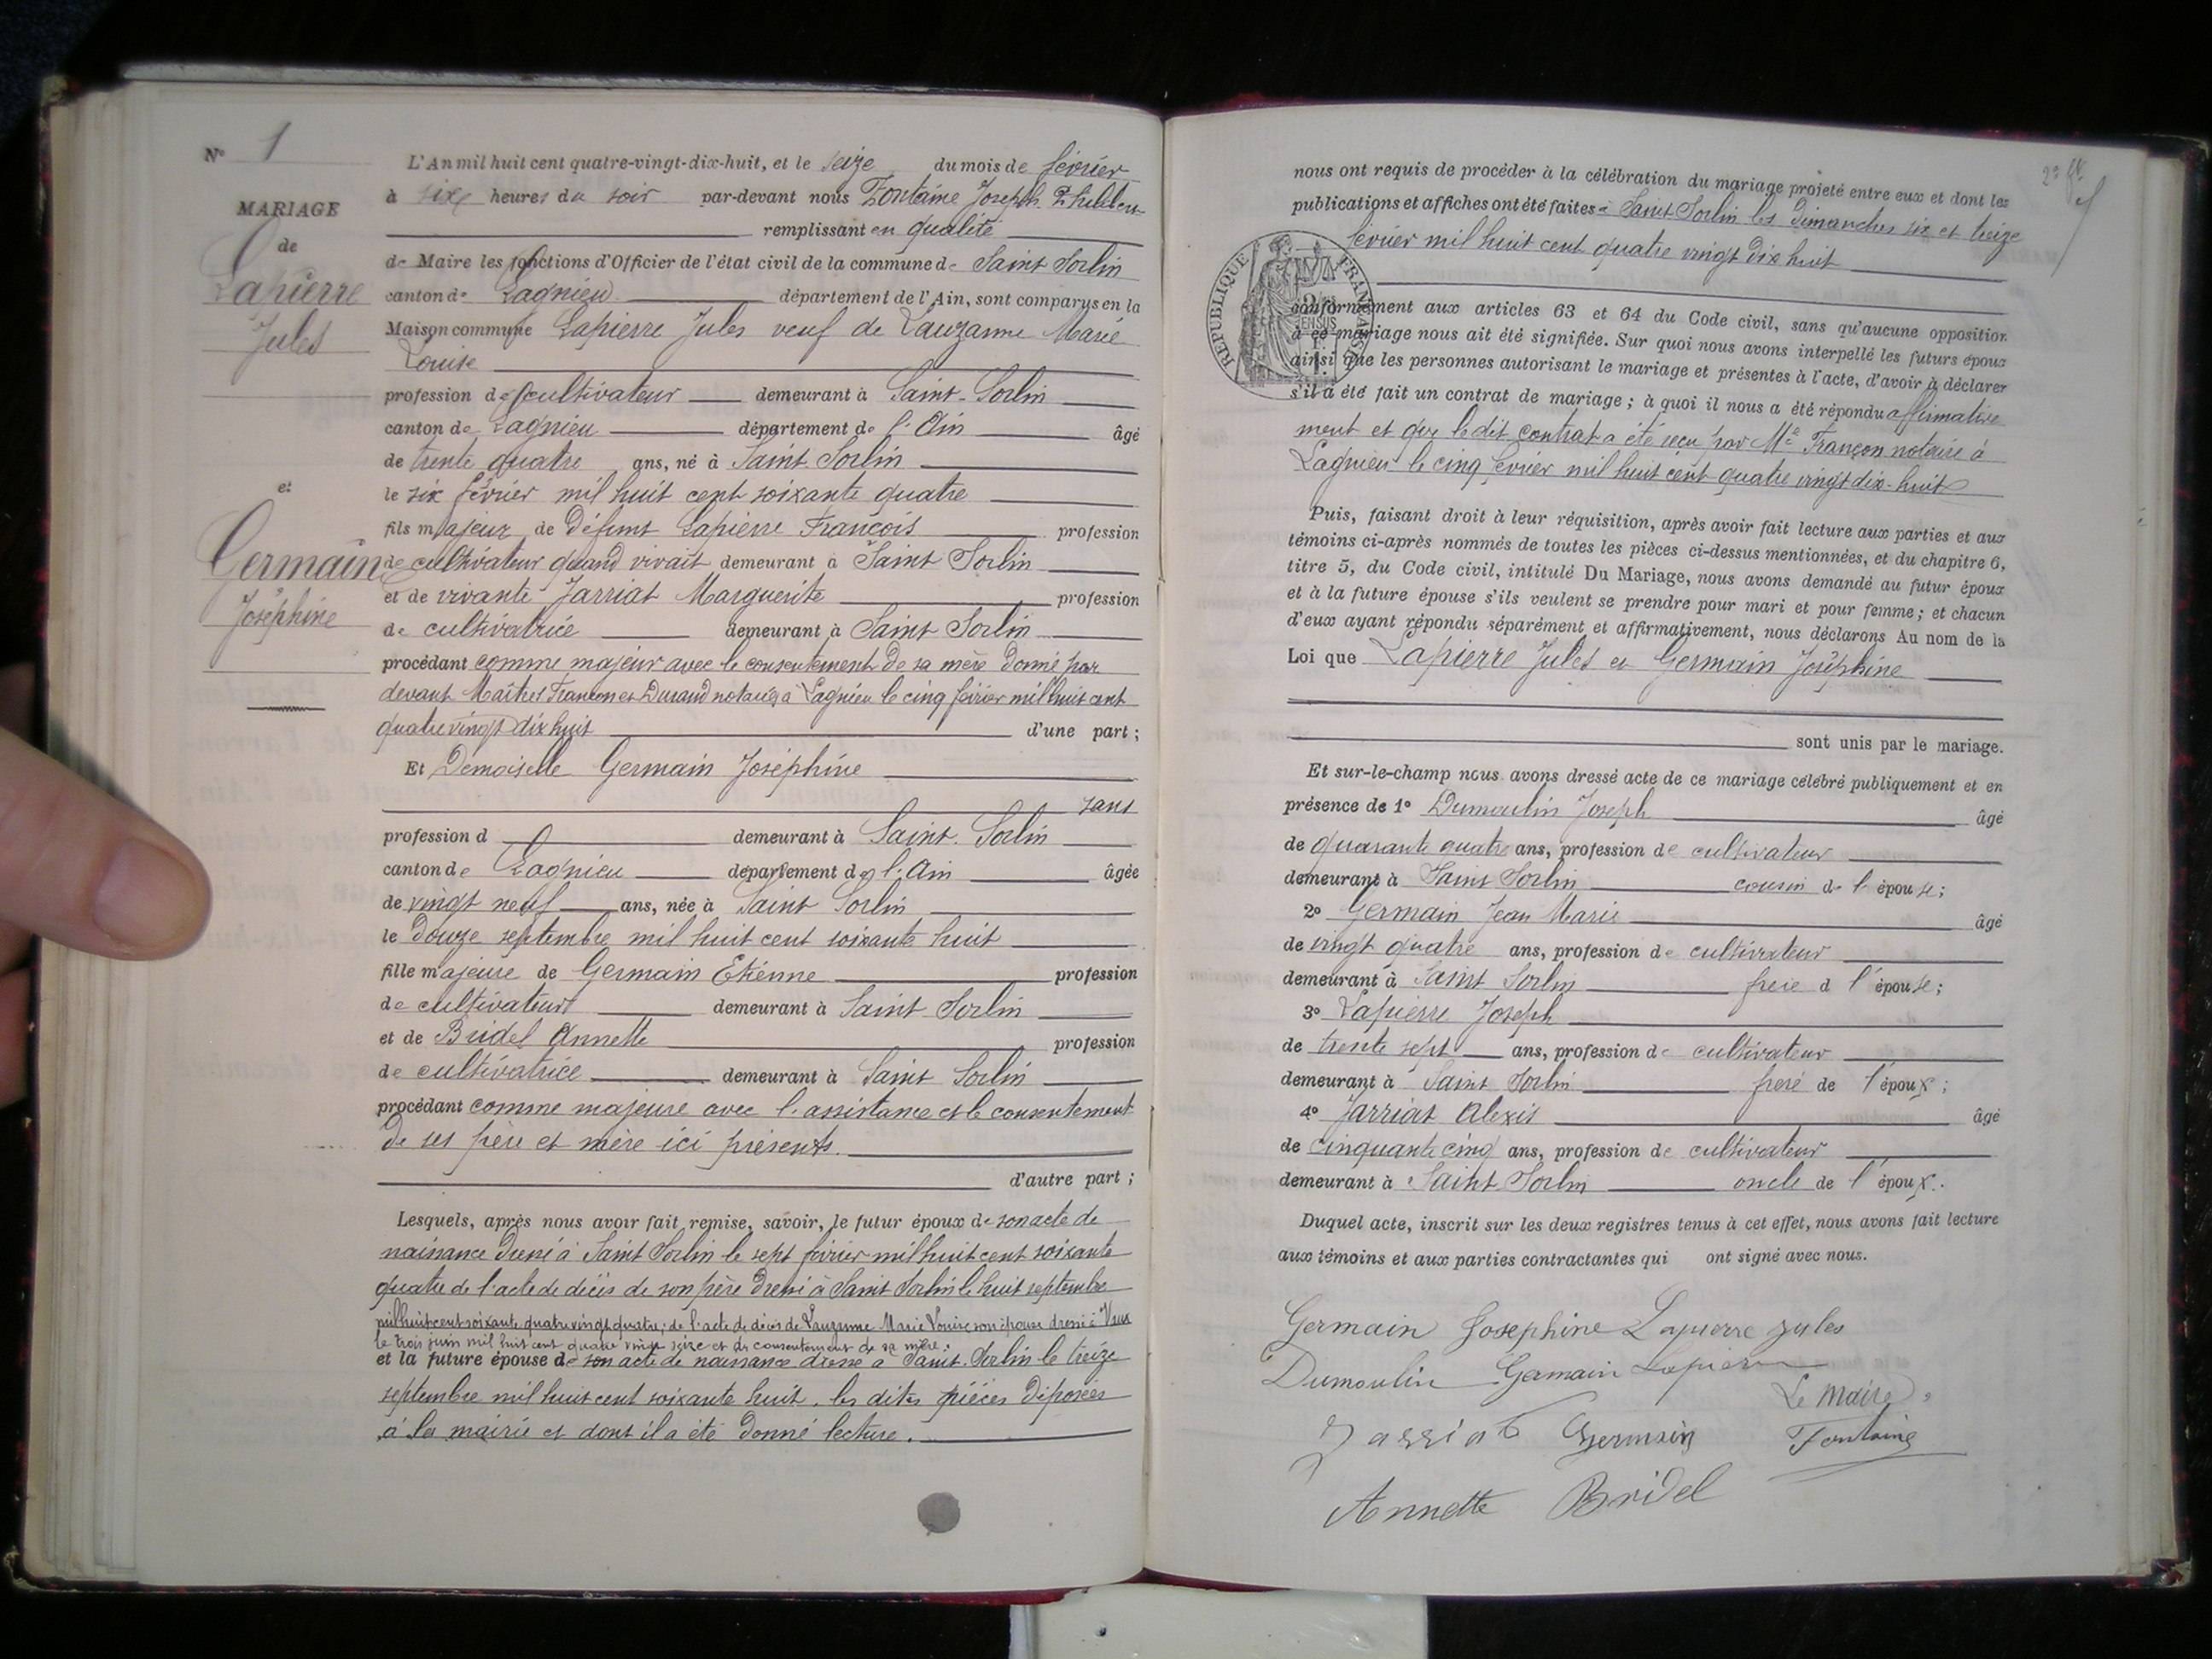 N° 1
MARIAGE
de
Lapierre
Jules
et
Germain
Joséphine
L'An mil huit cent quatre-vingt-dix-huit, et le seize du mois de février
à sixe heures du soir par-devant nous Fontaine Joseph
remplissant en qualité
de Maire les fonctions d'Officier de l'état civil de la commune de Saint Sorlin
canton de Lagnieu département de l'Ain, sont comparus en la
Maison commune Lapierre Jules veuf de Lauzanne Marie
Louise
profession de cultivateur demeurant à Saint-Sorlin
canton de Lagnieu département de l'Ain âgé
de trente quatre ans, né à Saint Sorlin
le six février mil huit cent soixante quatre
fils majeur de défunt Lapierre François profession
de cultivateur quand vivait demeurant à Saint Sorlin
et de vivante Jarriat Marguerite profession
de cultivatrice demeurant à Saint Sorlin
procédant comme majeur avec le consentement de sa mère donné par
devant Maîtres Françon et Durand notaires à Lagnieu le cinq février mil huit cent
quatre vingt dix huit d'une part;
Et Demoiselle Germain Joséphine
sans
profession d demeurant à Saint-Sorlin
canton de Lagnieu département de l'Ain âgée
de vingt neuf ans, née à Saint Sorlin
le douze septembre mil huit cent soixante huit
fille majeure de Germain Etienne profession
de cultivateur demeurant à Saint Sorlin
et de Bridel Annette profession
de cultivatrice demeurant à Saint Sorlin
procédant comme majeure avec l'assistance et le consentement
de ses père et mère ici présents.
d'autre part;
Lesquels, après nous avoir fait remise, savoir, le futur époux de son acte de
naissance dressé à Saint Sorlin le sept février mil huit cent soixante
quatre de l'acte de décès de son père dressé à Saint Sorlin le huit septembre
mil huit cent soixante quatre vingt quatre; de l'acte de décès de Lauzanne Marie Louise son épouse dressé à
le trois juin mil huit cent quatre vingt seize et du consentement de sa mère;
et la future épouse de son acte de naissance dressé à Saint-Sorlin le treize
septembre mil huit cent soixante huit. les dites pièces déposées
à la mairie et dont il a été donné lecture.
nous ont requis de procéder à la célébration du mariage projeté entre eux et dont les
publications et affiches ont été faites à Saint Sorlin les dimanches six et treize
février mil huit cent quatre vingt dix huit
RÉPUBLIQUE FRANÇAISE
conformément aux articles 63 et 64 du Code civil, sans qu'aucune opposition
à ce mariage nous ait été signifiée. Sur quoi nous avons interpellé les futurs époux
ainsi que les personnes autorisant le mariage et présentes à l'acte, d'avoir à déclarer
s'il a été fait un contrat de mariage; à quoi il nous a été répondu affirmative
ment et que le dit contrat a été reçu par Me Françon notaire à
Lagnieu le cinq février mil huit cent quatre vingt dix-huit
Puis, faisant droit à leur réquisition, après avoir fait lecture aux parties et aux
témoins ci-après nommés de toutes les pièces ci-dessus mentionnées, et du chapitre 6,
titre 5, du Code civil, intitulé Du Mariage, nous avons demandé au futur époux
et à la future épouse s'ils veulent se prendre pour mari et pour femme; et chacun
d'eux ayant répondu séparément et affirmativement, nous déclarons Au nom de la
Loi que Lapierre Jules et Germain Joséphine
sont unis par le mariage.
Et sur-le-champ nous avons dressé acte de ce mariage célébré publiquement et en
présence de 1° Dumoulin Joseph âgé
de quarante quatre ans, profession de cultivateur
demeurant à Saint Sorlin cousin de l'épouse;
2° Germain Jean Marie âgé
de vingt quatre ans, profession de cultivateur
demeurant à Saint Sorlin frere d l'épouse;
3° Lapierre Joseph
de trente sept ans, profession de cultivateur
demeurant à Saint Sorlin frere de l'époux;
4° Jarriat Alexis âgé
de cinquante cinq ans, profession de cultivateur
demeurant à Saint Sorlin oncle de l'époux.
Duquel acte, inscrit sur les deux registres tenus à cet effet, nous avons fait lecture
aux témoins et aux parties contractantes qui ont signé avec nous.
Germain Josephine Lapierre Jules
Dumoulin Germain Lapierre
Le Maire,
Jarriat Germain Fontaine
Annette Bridel